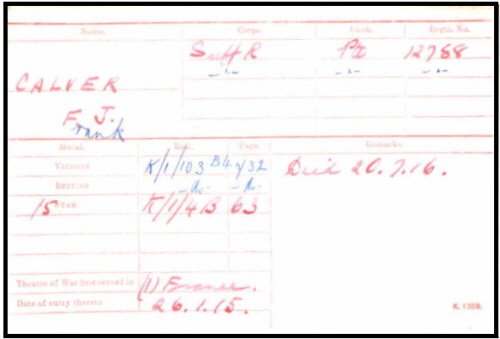 Name. Corps. Rank. Regtl. No.
Suff R Pte 12768
CALVER
F. J.
rank
Medal. Roll. Page. Remarks.
VICTORY K/1/103 B4 432 Died 20.7.16.
BRITISH -do- -do-
15 STAR K/1/4B 63
Theatre of War first served in (1) France.
Date of entry therein 26.1.15.
K. 1380.